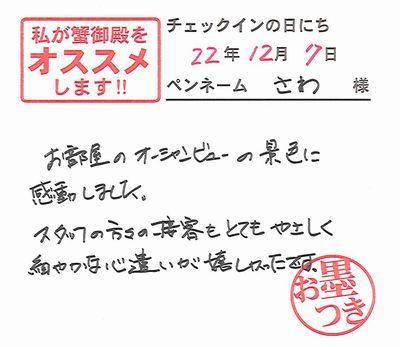 私が蟹御殿を
オススメ
します!!
チェックインの日にち
22年12月9日
ペンネーム さわ 様
お部屋のオーシャンビューの景色に
感動しました。
スタッフの方々の接客もとてもやさしく
細やかな心遣いが嬉しかったです。
お墨
つき